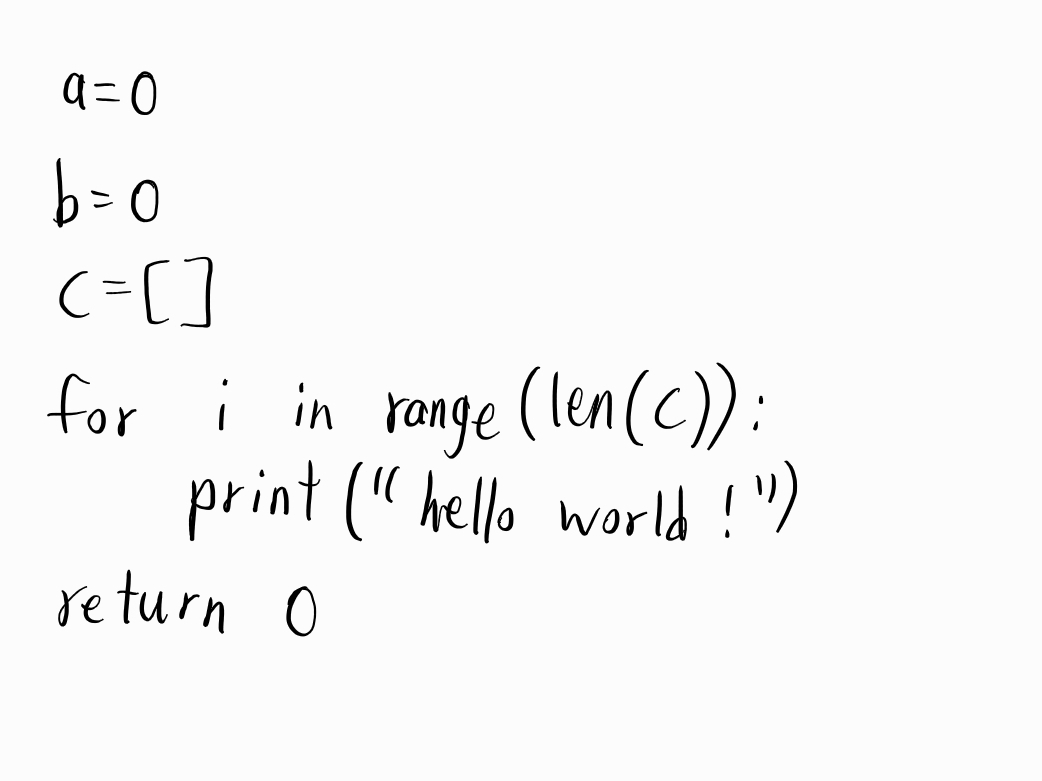 a=0
b=0
c=[]
for i in range(len(c)):
    print("hello world!")
return 0